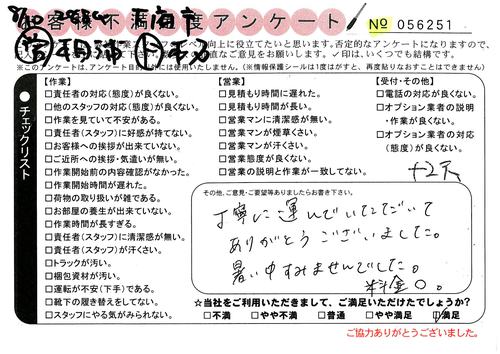 お客様不満足度アンケート
№ 056251
上に役立てたいと思います。否定的なアンケートになりますので、
ご意見をお願いします。✓印は、いくつでも結構です。
※このアンケートは、アンケート目的以外には使用いたしません。(※情報保護シールは1度はがすと、再度貼りなおすことはできません)
チェックリスト
【作業】
□責任者の対応(態度)が良くない。
□他のスタッフの対応(態度)が良くない。
□作業を見ていて不安がある。
□責任者(スタッフ)に好感が持てない。
□お客様への挨拶が出来ていない。
□ご近所への挨拶・気遣いが無い。
□作業開始前の内容確認がなかった。
□作業開始時間が遅れた。
□荷物の取り扱いが雑である。
□お部屋の養生が出来ていない。
□作業時間が長すぎる。
□責任者(スタッフ)に清潔感が無い。
□責任者(スタッフ)が汗くさい。
□トラックが汚い。
□梱包資材が汚い。
□運転が不安(下手)である。
□靴下の履き替えをしてない。
□スタッフにやる気がみられない。
【営業】
□見積もりに遅れた。
□見積もり時間が長い。
□営業マンに清潔感が無い。
□営業マンが煙草くさい。
□営業マンが汗くさい。
□営業態度が良くない。
□営業の説明と作業が一致してない。
【受付・その他】
□電話の対応が良くない。
□オプション業者の説明
・作業が良くない。
□オプション業者の対応
(態度)が良くない。
その他、ご意見・ご要望等ありましたらお書き下さい。
丁寧に運んでいただいて
ありがとうございました。
暑い中すみませんでした。
料金〇。
☆当社をご利用いただきまして、ご満足いただけたでしょうか?
□不満 □やや不満 □普通 □やや満足 ☑満足
ご協力ありがとうございました。